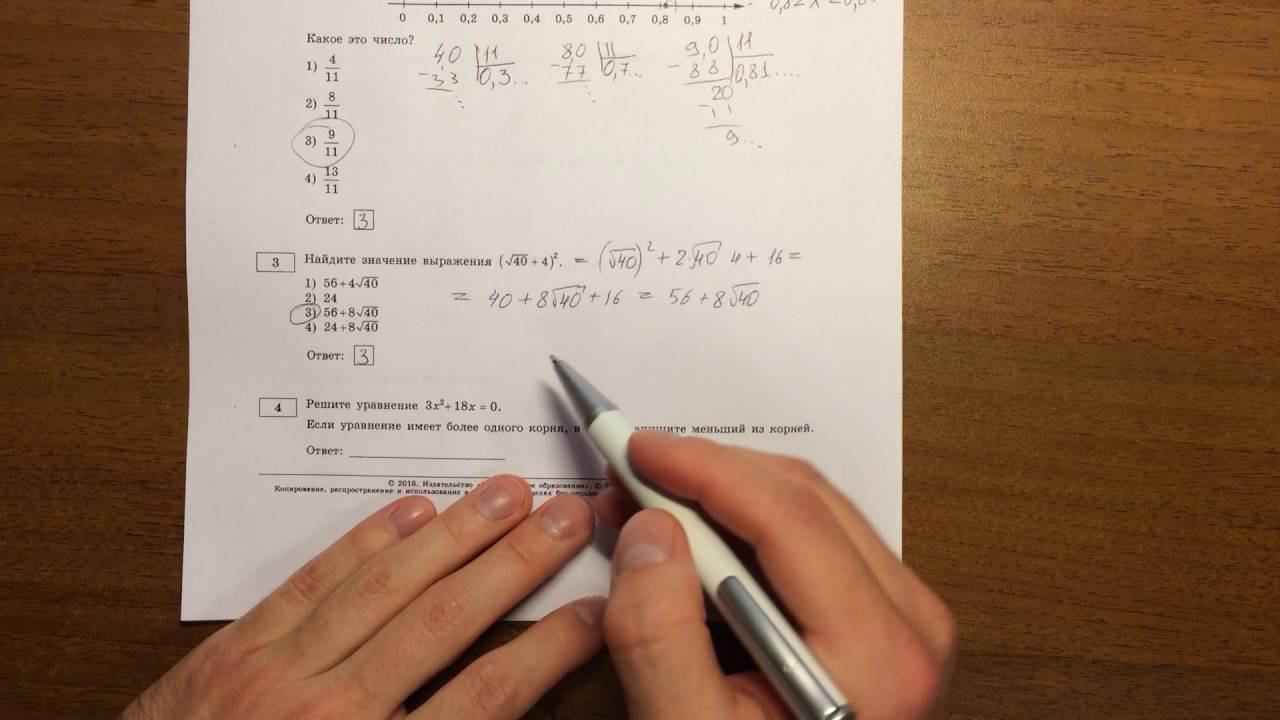 0 0,1 0,2 0,3 0,4 0,5 0,6 0,7 0,8 0,9 1
Какое это число?
1) 4/11
2) 8/11
3) 9/11
4) 13/11
4,0 11
- 3,3 0,3...
8,0 11
- 77 0,7...
9,0 11
- 88 0,81....
20
- 11
9...
Ответ: 3
3 Найдите значение выражения (√40 + 4)². = (√40)² + 2·√40 · 4 + 16 =
= 40 + 8√40 + 16 = 56 + 8√40
1) 56+4√40
2) 24
3) 56+8√40
4) 24+8√40
Ответ: 3
4 Решите уравнение 3x²+18x = 0.
Если уравнение имеет более одного корня, в меньший из корней.
Ответ:
© 2016. Издательство образование». ©
Копирование, распространение и использование в целях без